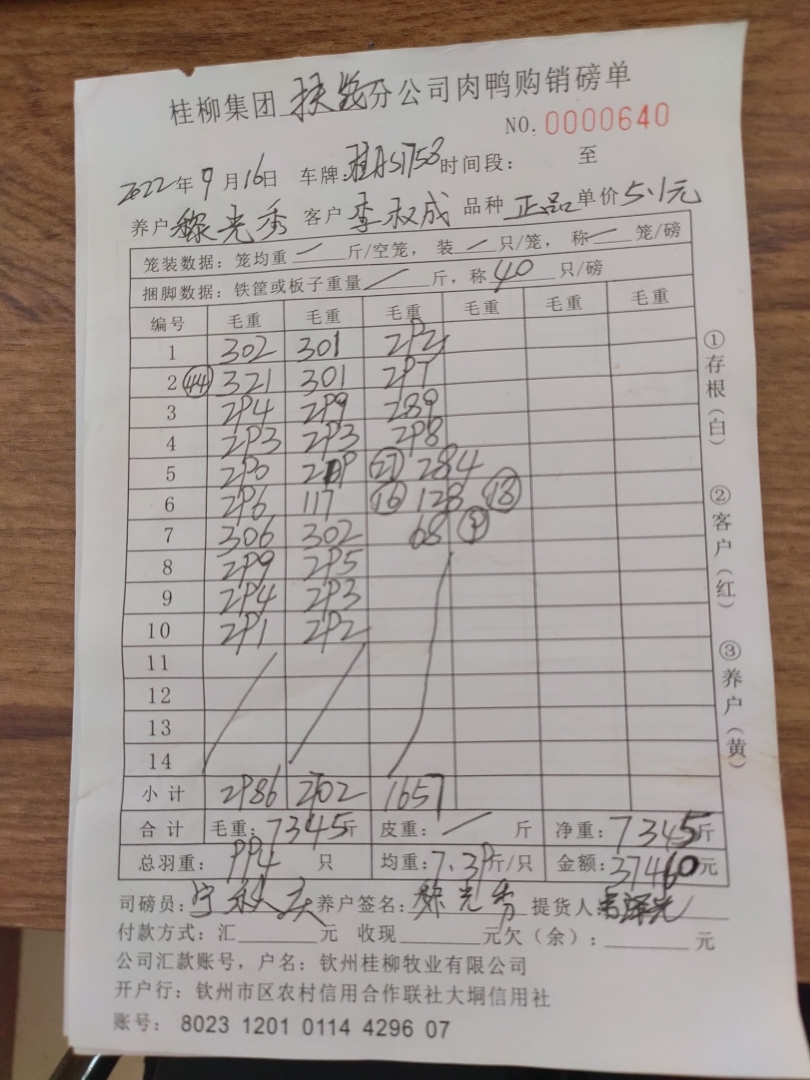 桂柳集团扶绥分公司肉鸭购销磅单
NO. 0000640
2022年9月16日 车牌:桂AS1758 时间段: 至
养户 黎光秀 客户 李叔成 品种 正品 单价 5.1元
笼装数据:笼均重 / 斤/空笼,装 / 只/笼,称 / 笼/磅
捆脚数据:铁筐或板子重量 / 斤,称 40 只/磅
编号 毛重 毛重 毛重 毛重 毛重 毛重
1 302 301 292
2 ㊹ 321 301 297
3 294 299 289
4 293 293 298
5 290 209 ㉗ 284
6 296 117 ⑯ 128 ⑱
7 306 302 68 ⑨
8 299 295
9 294 293
10 291 292
11
12
13
14
小计 2986 2702 1657
合计 毛重:7345斤 皮重: / 斤 净重:7345斤
总羽重:994 只 均重:7.39斤/只 金额:37460元
司磅员: 养户签名:黎光秀 提货人:
付款方式:汇 元 收现 元欠(余): 元
公司汇款账号,户名:钦州桂柳牧业有限公司
开户行:钦州市区农村信用合作联社大垌信用社
账号: 8023 1201 0114 4296 07
①存根(白)
②客户(红)
③养户(黄)